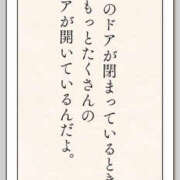 のドアが閉まっているとき
もっとたくさんの
アが開いているんだよ。